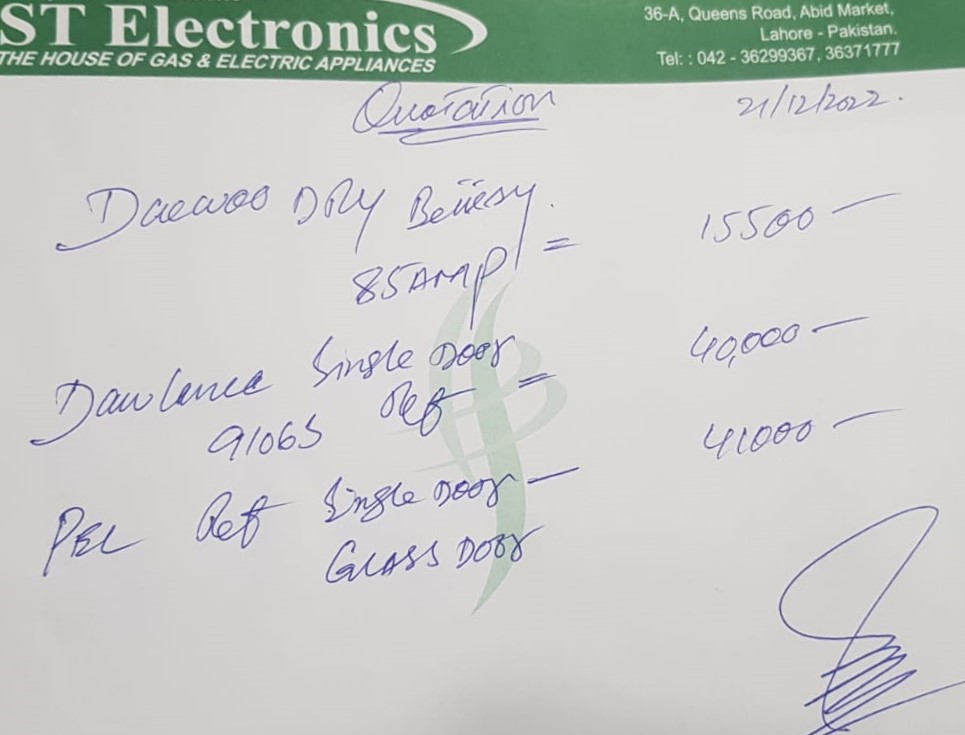 ST Electronics
THE HOUSE OF GAS & ELECTRIC APPLIANCES
36-A, Queens Road, Abid Market,
Lahore - Pakistan.
Tel: : 042 - 36299367, 36371777
Quotation
21/12/2022.
Daewoo DRY Battery. 15500 —
85 AMP =
Dawlance Single Door 40,000 —
91065 Ref =
PEL Ref Single Door — 41000 —
GLASS DOOR